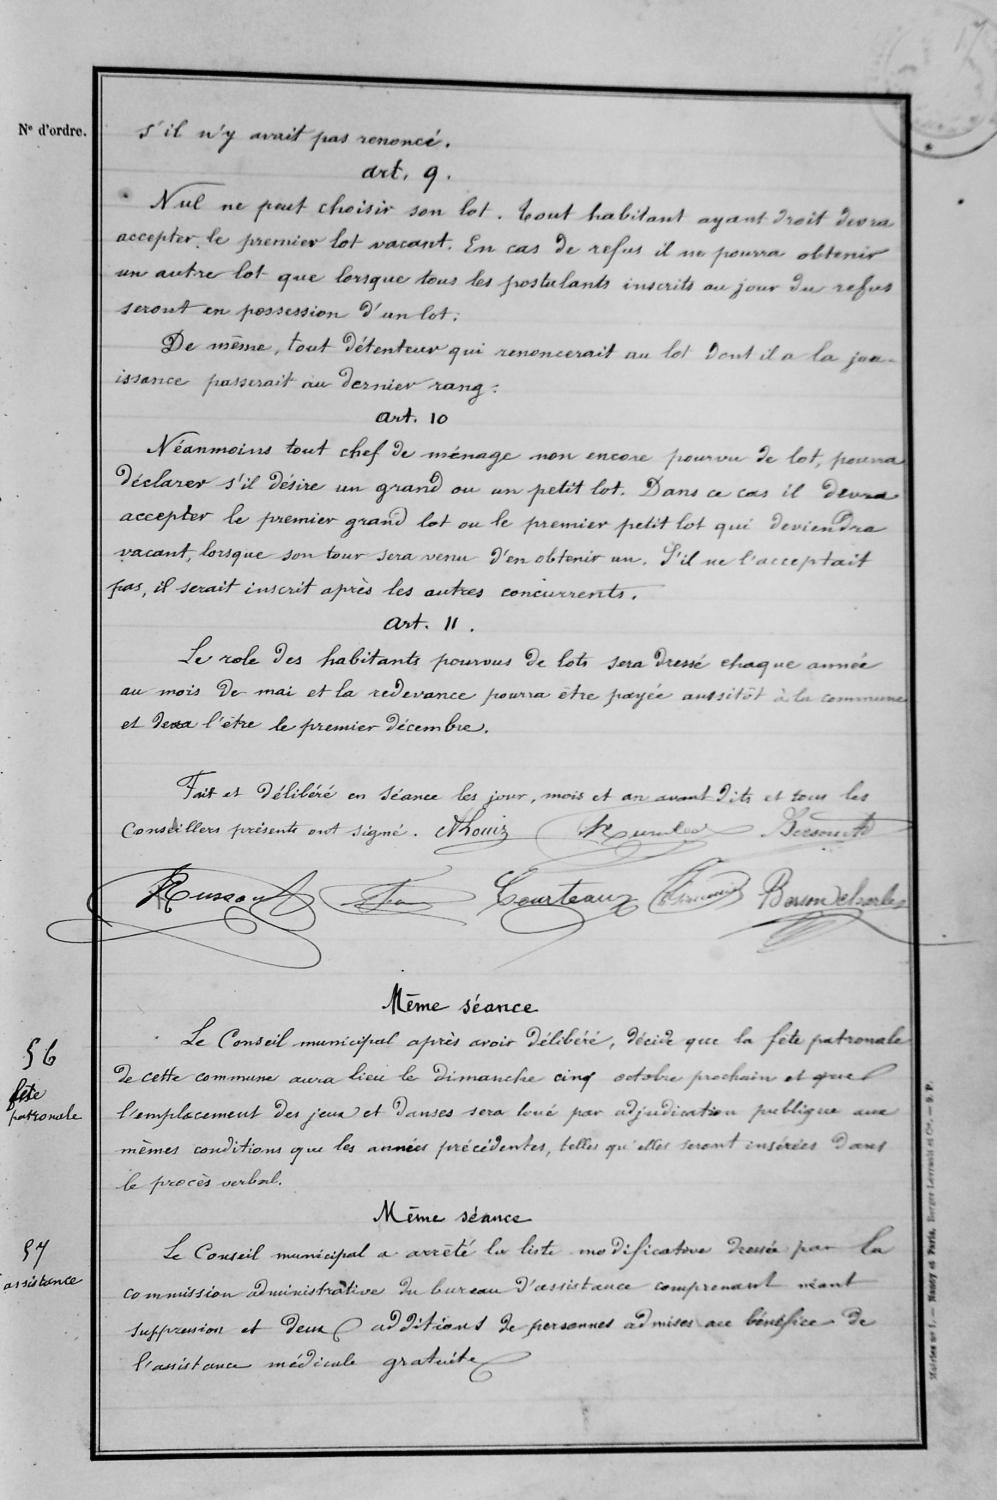 17
N° d'ordre.
s'il n'y avait pas renoncé.
art. 9.
Nul ne peut choisir son lot. tout habitant ayant droit devra
accepter le premier lot vacant. En cas de refus il ne pourra obtenir
un autre lot que lorsque tous les postulants inscrits au jour du refus
seront en possession d'un lot.
De même, tout détenteur qui renoncerait au lot dont il a la jou-
issance passerait au dernier rang.
art. 10
Néanmoins tout chef de ménage non encore pourvu de lot, pourra
déclarer s'il désire un grand ou un petit lot. Dans ce cas il devra
accepter le premier grand lot ou le premier petit lot qui deviendra
vacant, lorsque son tour sera venu d'en obtenir un. S'il ne l'acceptait
pas, il serait inscrit après les autres concurrents.
art. 11.
Le role des habitants pourvus de lots sera dressé chaque année
au mois de mai et la redevance pourra être payée aussitôt à la commune
et devra l'être le premier décembre.
Fait et délibéré en séance les jour, mois et an avant dits et tous les
Conseillers présents ont signé.
Courteaux
Même séance
56
fête
patronale
Le Conseil municipal après avoir délibéré, décide que la fête patronale
de cette commune aura lieu le dimanche cinq octobre prochain et que
l'emplacement des jeux et danses sera loué par adjudication publique aux
mêmes conditions que les années précédentes, telles qu'elles seront insérées dans
le procès verbal.
Même séance
57
assistance
Le Conseil municipal a arrêté la liste modificative dressée par la
commission administrative du bureau d'assistance comprenant néant
suppression et deux additions de personnes admises au bénéfice de
l'assistance médicale gratuite
Mairies n° 1. — Nancy et Paris. Berger-Levrault et Cie. — S. P.